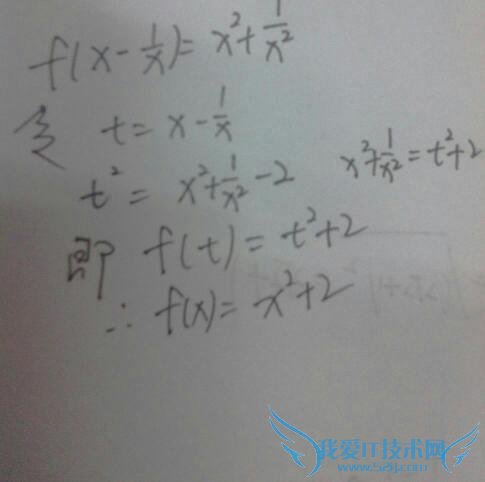 f(x - 1/x) = x² + 1/x²
令 t = x - 1/x
t² = x² + 1/x² - 2 x² + 1/x² = t² + 2
即 f(t) = t² + 2
∴ f(x) = x² + 2
我爱IT技术网
www.52ij.com